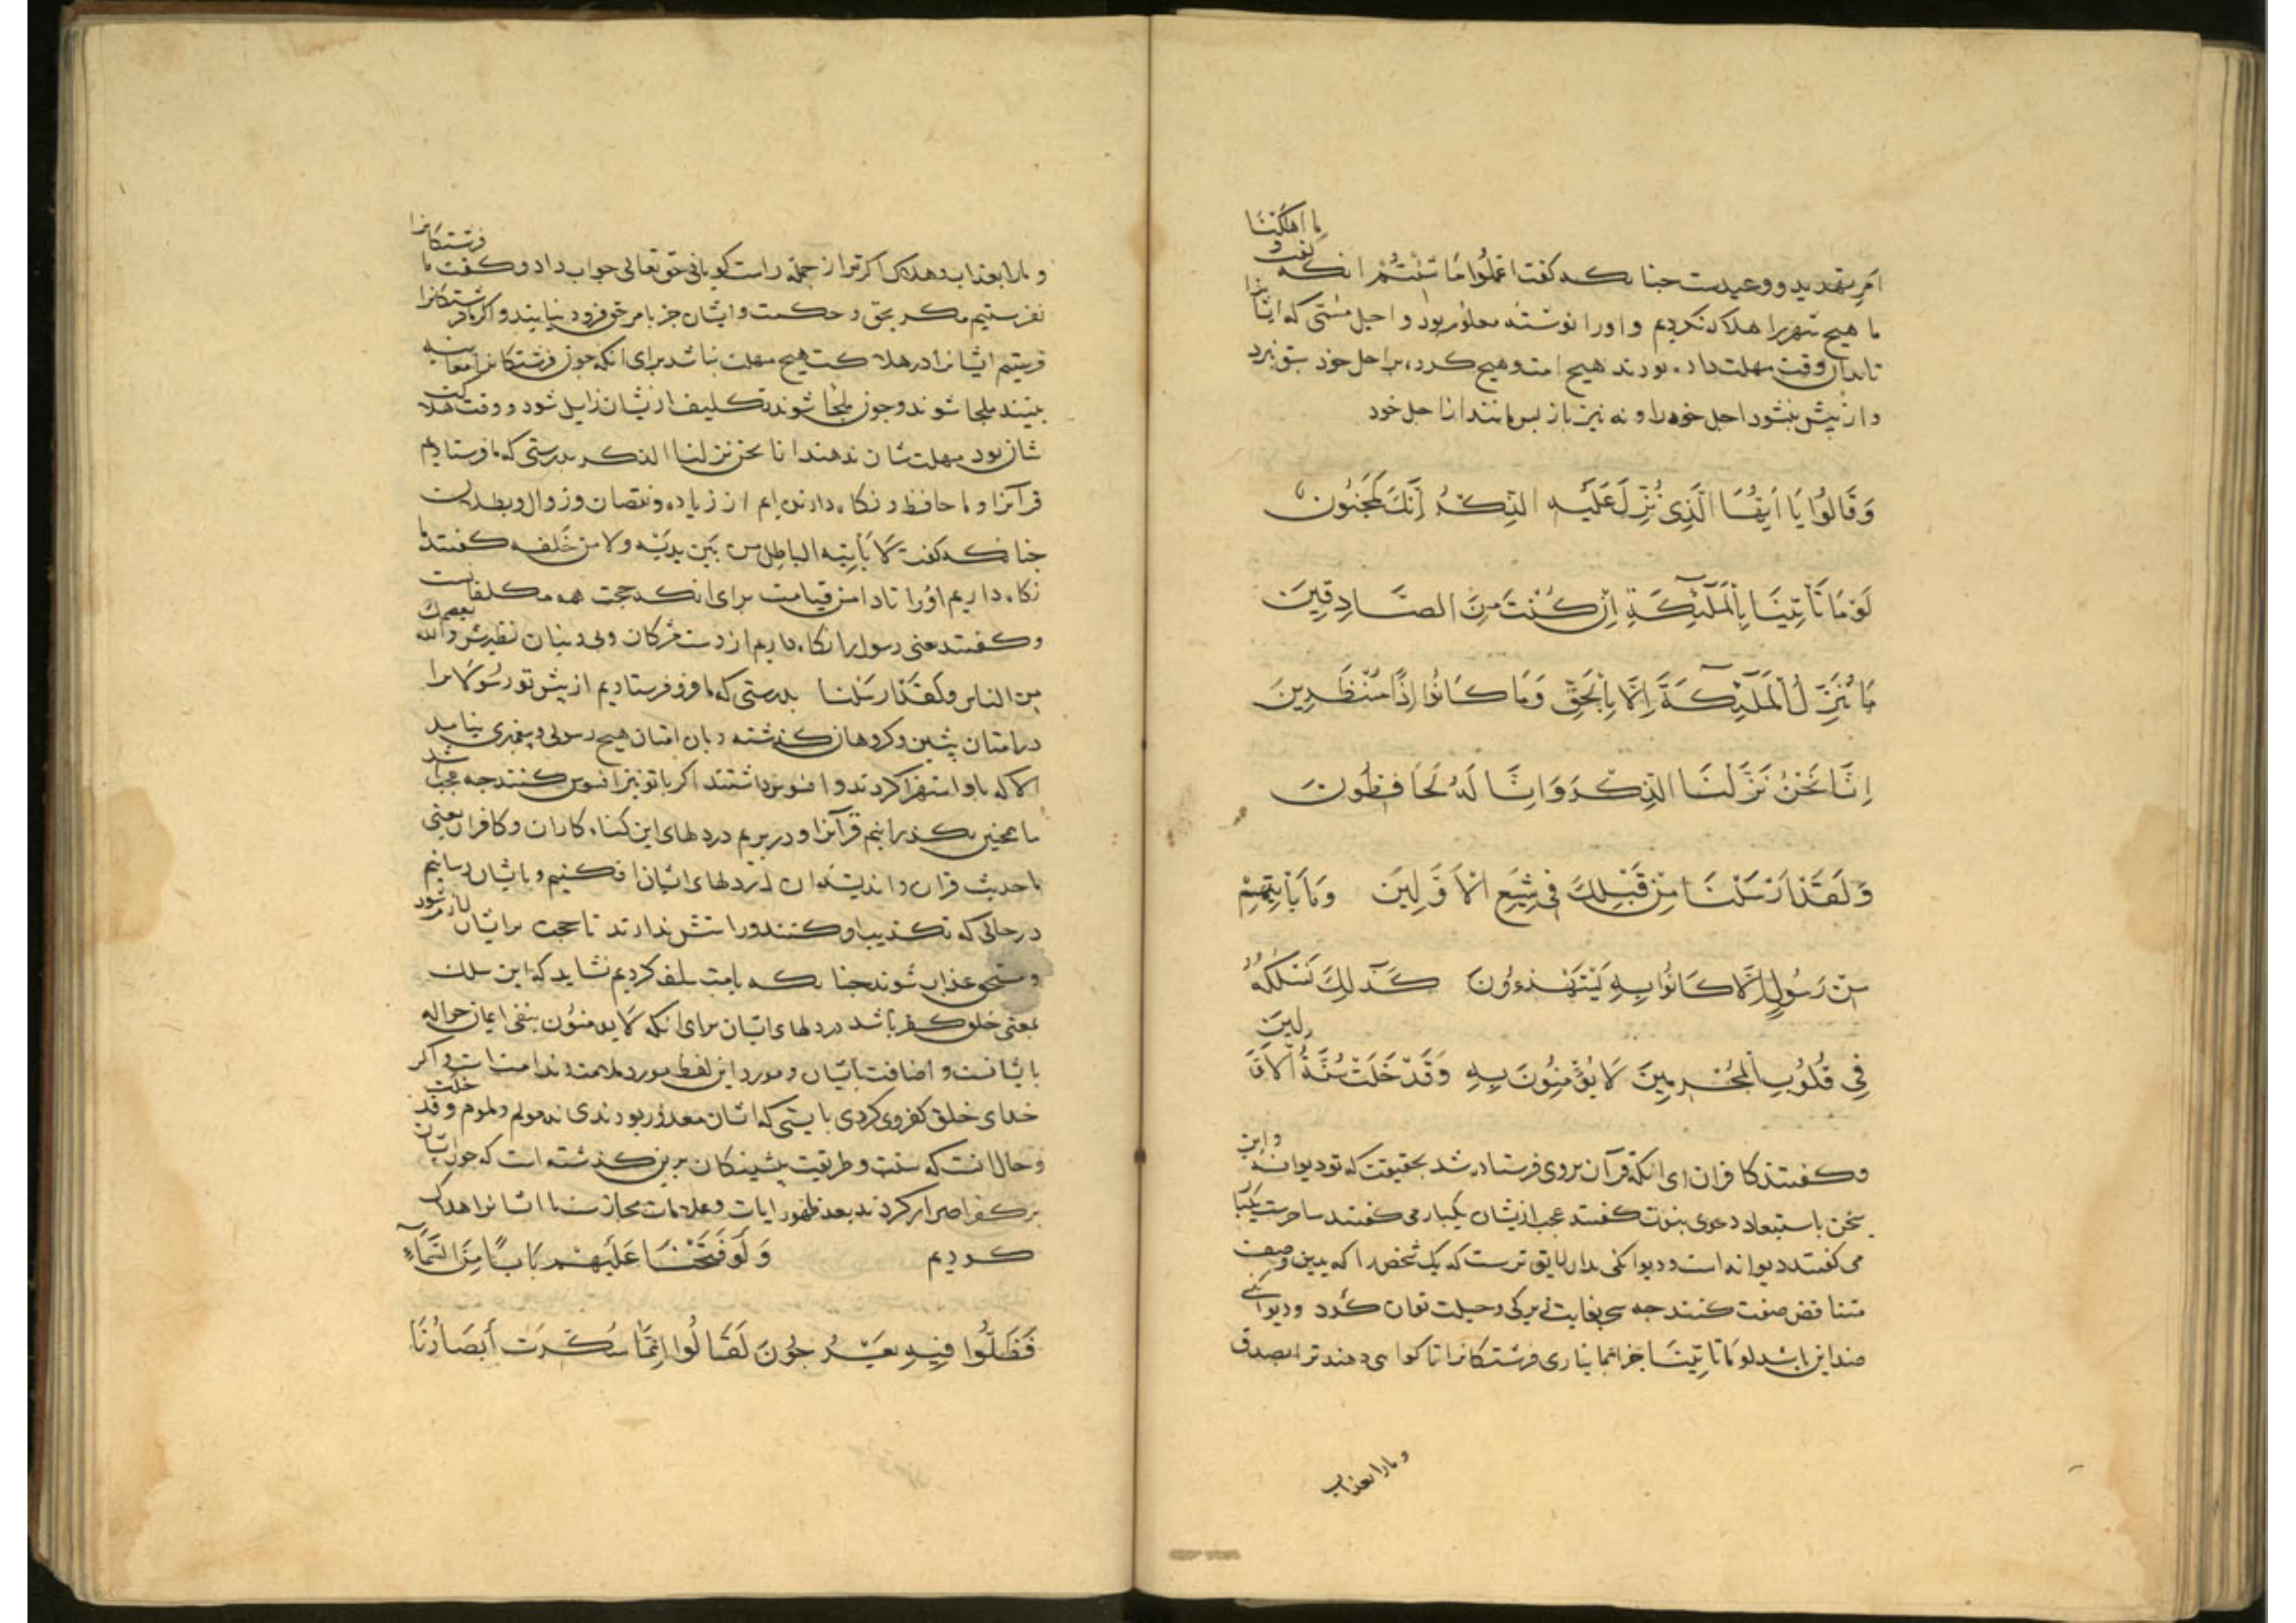 امر تهدید و وعیدست جنانکه کفت اعملوا ما شئتم انکه کفت و ما اهلکنا
ما هیچ شهر را هلاک نکردیم و او را نوشته معلوم بود و اجل مسمّی که ایشانرا
تا بدان وقت مهلت داده بودند هیچ امت و هیچ کروه بر اجل خود سبق نبرد
و از پیش بنشود اجل خود را و نه نیز باز پس مانند از اجل خود
وَقَالُوا یَا اَیُّهَا الَّذِی نُزِّلَ عَلَیْهِ الذِّکْرُ اِنَّكَ لَمَجْنُون
لَوْمَا تَأْتِیْنَا بِالْمَلٰٓئِکَةِ اِنْ کُنْتَ مِنَ الصَّادِقِیَن
مَا نُنَزِّلُ الْمَلٰٓئِکَةَ اِلَّا بِالْحَقِّ وَمَا کَانُوا اِذًا مُنْظَرِینَ
اِنَّا نَحْنُ نَزَّلْنَا الذِّکْرَ وَاِنَّا لَهُ لَحَافِظُونَ
وَلَقَدْ اَرْسَلْنَا مِنْ قَبْلِكَ فِی شِیَعِ الْاَوَّلِینَ وَمَا یَأْتِیهِمْ
مِنْ رَسُولٍ اِلَّا کَانُوا بِهِ یَسْتَهْزِءُونَ کَذٰلِكَ نَسْلُکُهُ
فِی قُلُوبِ الْمُجْرِمِینَ لَا یُؤْمِنُونَ بِهِ وَقَدْ خَلَتْ سُنَّةُ الْاَوَّلِینَ
و کفتند کافران ای انکه قرآن بر وی فرستاده شد بحقیقت که تو دیوانه و این
سخن باستبعاد دعوی نبوت کفتند عجب ازیشان یکبار می کفتند ساحرست یکبار
می کفتند دیوانه است و دیوانکی بدان لایق ترست که یک شخص را که بدین وصف
متناقض صفت کنند جه سحر بغایت زیرکی و حیلت توان کرد و دیوانکی
ضد این باشد لو ما تاتینا جرا بما نیاری فرشتکانرا تا کواهی دهند ترا بصدق
و ما را بعذاب
و ما را بعذاب و هلاک اکر تو از جمله راست کویانی حق تعالی جواب داد و کفت ما فرشتکانرا
نفرستیم مکر بحق و حکمت و ایشان جز بامر حق فرود نیایند و اکر ما فرشتکانرا
فرستیم ایشانرا در هلاکت هیچ مهلت نباشد برای انکه جون فرشتکانرا معاینه
بینند ملجا شوند و جون ملجا شوند تکلیف ازیشان زایل شود و وقت هلاکت
شان بود مهلت شان ندهند انا نحن نزلنا الذکر بدرستی که ما فرستادیم
قرآنرا و ما حافظ و نکاه دارنده ایم از زیاده و نقصان و زوال و بطلان
جنانکه کفت لا یأتیه الباطل من بین یدیه ولا من خلفه کفتند ما
نکاه داریم او را تا دامن قیامت برای انکه حجت همه مکلفانست
و کفتند معنی رسول را نکاه داریم از دست مشرکان و بی دینان نظیرش والله یعصمك
من الناس ولقد ارسلنا بدرستی که ما فرو فرستادیم از پیش تو رسولانرا
در امتان پیشین و کروهان کذشته و بان امتان هیچ رسولی و پیغمبری نیامد
الا که باو استهزا کردند و افسوس داشتند اکر با تو نیز افسوس کنند جه عجب باشد
ما همجنین بکذرانیم قرآنرا و در بریم در دلهای این کناه کاران و کافران یعنی
ما حدیث قران و اندیشه ان در دلهای ایشان افکنیم و بایشان رسانیم
در حالی که تکذیب او کنند و راستش ندارند تا حجت بر ایشان لازم شود
و مستحق عذاب شوند جنانکه بامت سلف کردیم نشاید که این سلك
بمعنی خلق کفر باشد در دلهای ایشان برای انکه لا یومنون بنفی ایمان حواله
بایشانست و اضافت بایشان و مورد این لفظ مورد ملامت و ندامت است و اکر
خدای خلق کفر وی کردی بایستی که ایشان معذور بودندی نه مولم و ملوم وقد خلت
و حال انست که سنت و طریقت پیشینکان برین کذشته است که جون ایشان
بر کفر اصرار کردند بعد ظهور ایات و علامات معجزات ما ایشانرا هلاک
کردیم وَلَوْ فَتَحْنَا عَلَیْهِمْ بَابًا مِنَ السَّمَآءِ
فَظَلُّوا فِیهِ یَعْرُجُونَ لَقَالُوا اِنَّمَا سُکِّرَتْ أَبْصَارُنَا